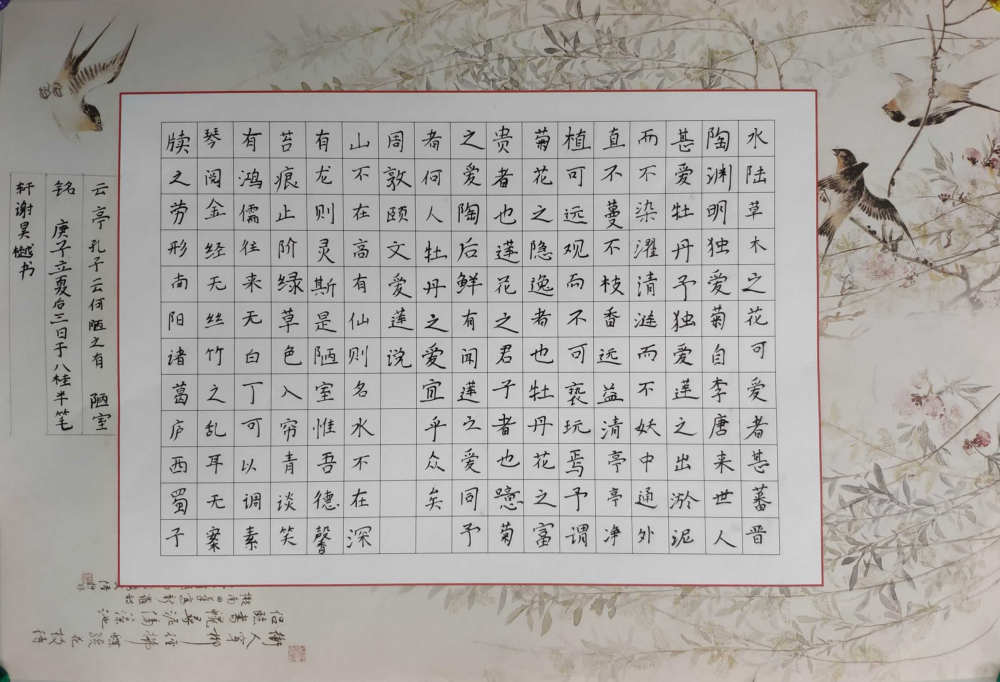 水陆草木之花可爱者甚蕃晋
陶渊明独爱菊自李唐来世人
甚爱牡丹予独爱莲之出淤泥
而不染濯清涟而不妖中通外
直不蔓不枝香远益清亭亭净
植可远观而不可亵玩焉予谓
菊花之隐逸者也牡丹花之富
贵者也莲花之君子者也噫菊
之爱陶后鲜有闻莲之爱同予
者何人牡丹之爱宜乎众矣
周敦颐文爱莲说
山不在高有仙则名水不在深
有龙则灵斯是陋室惟吾德馨
苔痕止阶绿草色入帘青谈笑
有鸿儒往来无白丁可以调素
琴阅金经无丝竹之乱耳无案
牍之劳形南阳诸葛庐西蜀子
云亭孔子云何陋之有 陋室
铭 庚子立夏后三日于八桂半笔
轩谢昊樾书